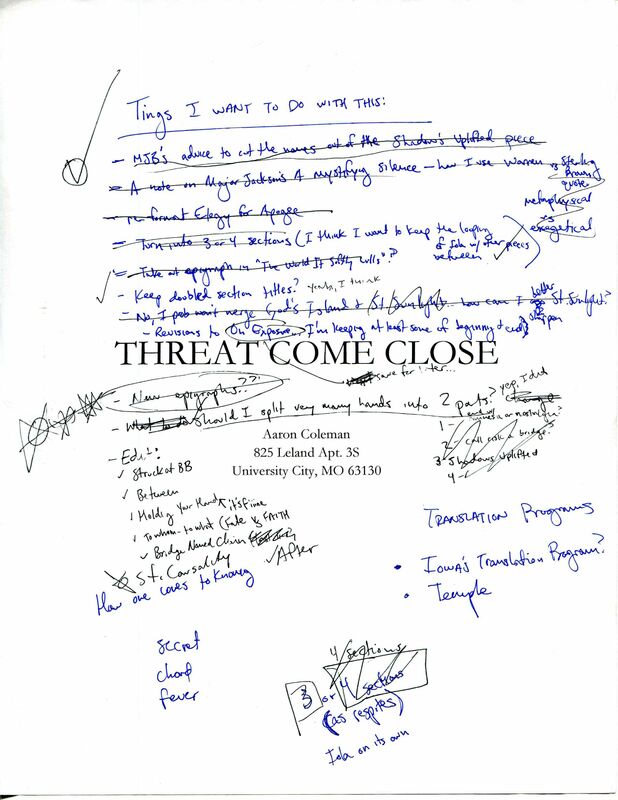 Tings I WANT TO DO WITH THIS:
- MJB's advice to cut the names out of the Shadows Uplifted piece
- A note on Major Jackson's A mystifying silence - how I use Warren vs Sterling Brown quote
metaphysical
vs
exegetical
- re-format Elegy for Apogee
- Turn into 3 or 4 sections (I think I want to keep the looping
of Iola w/ other pieces
between
- Take out epigraph in "The World It Softly Lulls"??
- Keep doubled section titles? Yeah, I think
- No, I prob won't merge God's Island & St. Sunlight... how can I better St. Sunlight?
- Revisions to On Exposure... I'm keeping at least some of beginning & end
THREAT COME CLOSE
save for later...
- New epigraphs??
- Should I split very many hands into 2 parts? yep, I did
Aaron Coleman
825 Leland Apt. 3S
University City, MO 63130
1-
2- call such a bridge?
3- Shadows Uplifted
4-
- Edit:
✓ Struck at BB
✓ Between
✓ Holding Your Hand, it's fine
✓ To whom - to what (Fate vs FAITH
✓ Bridge Named Chain
✓ After
St. Causality
How one comes to knowing
TRANSLATION PROGRAMS
• Iowa's Translation Program?
• Temple
secret
chord
fever
4 sections
3 or 4 sections
(as respites)
Iola on its own